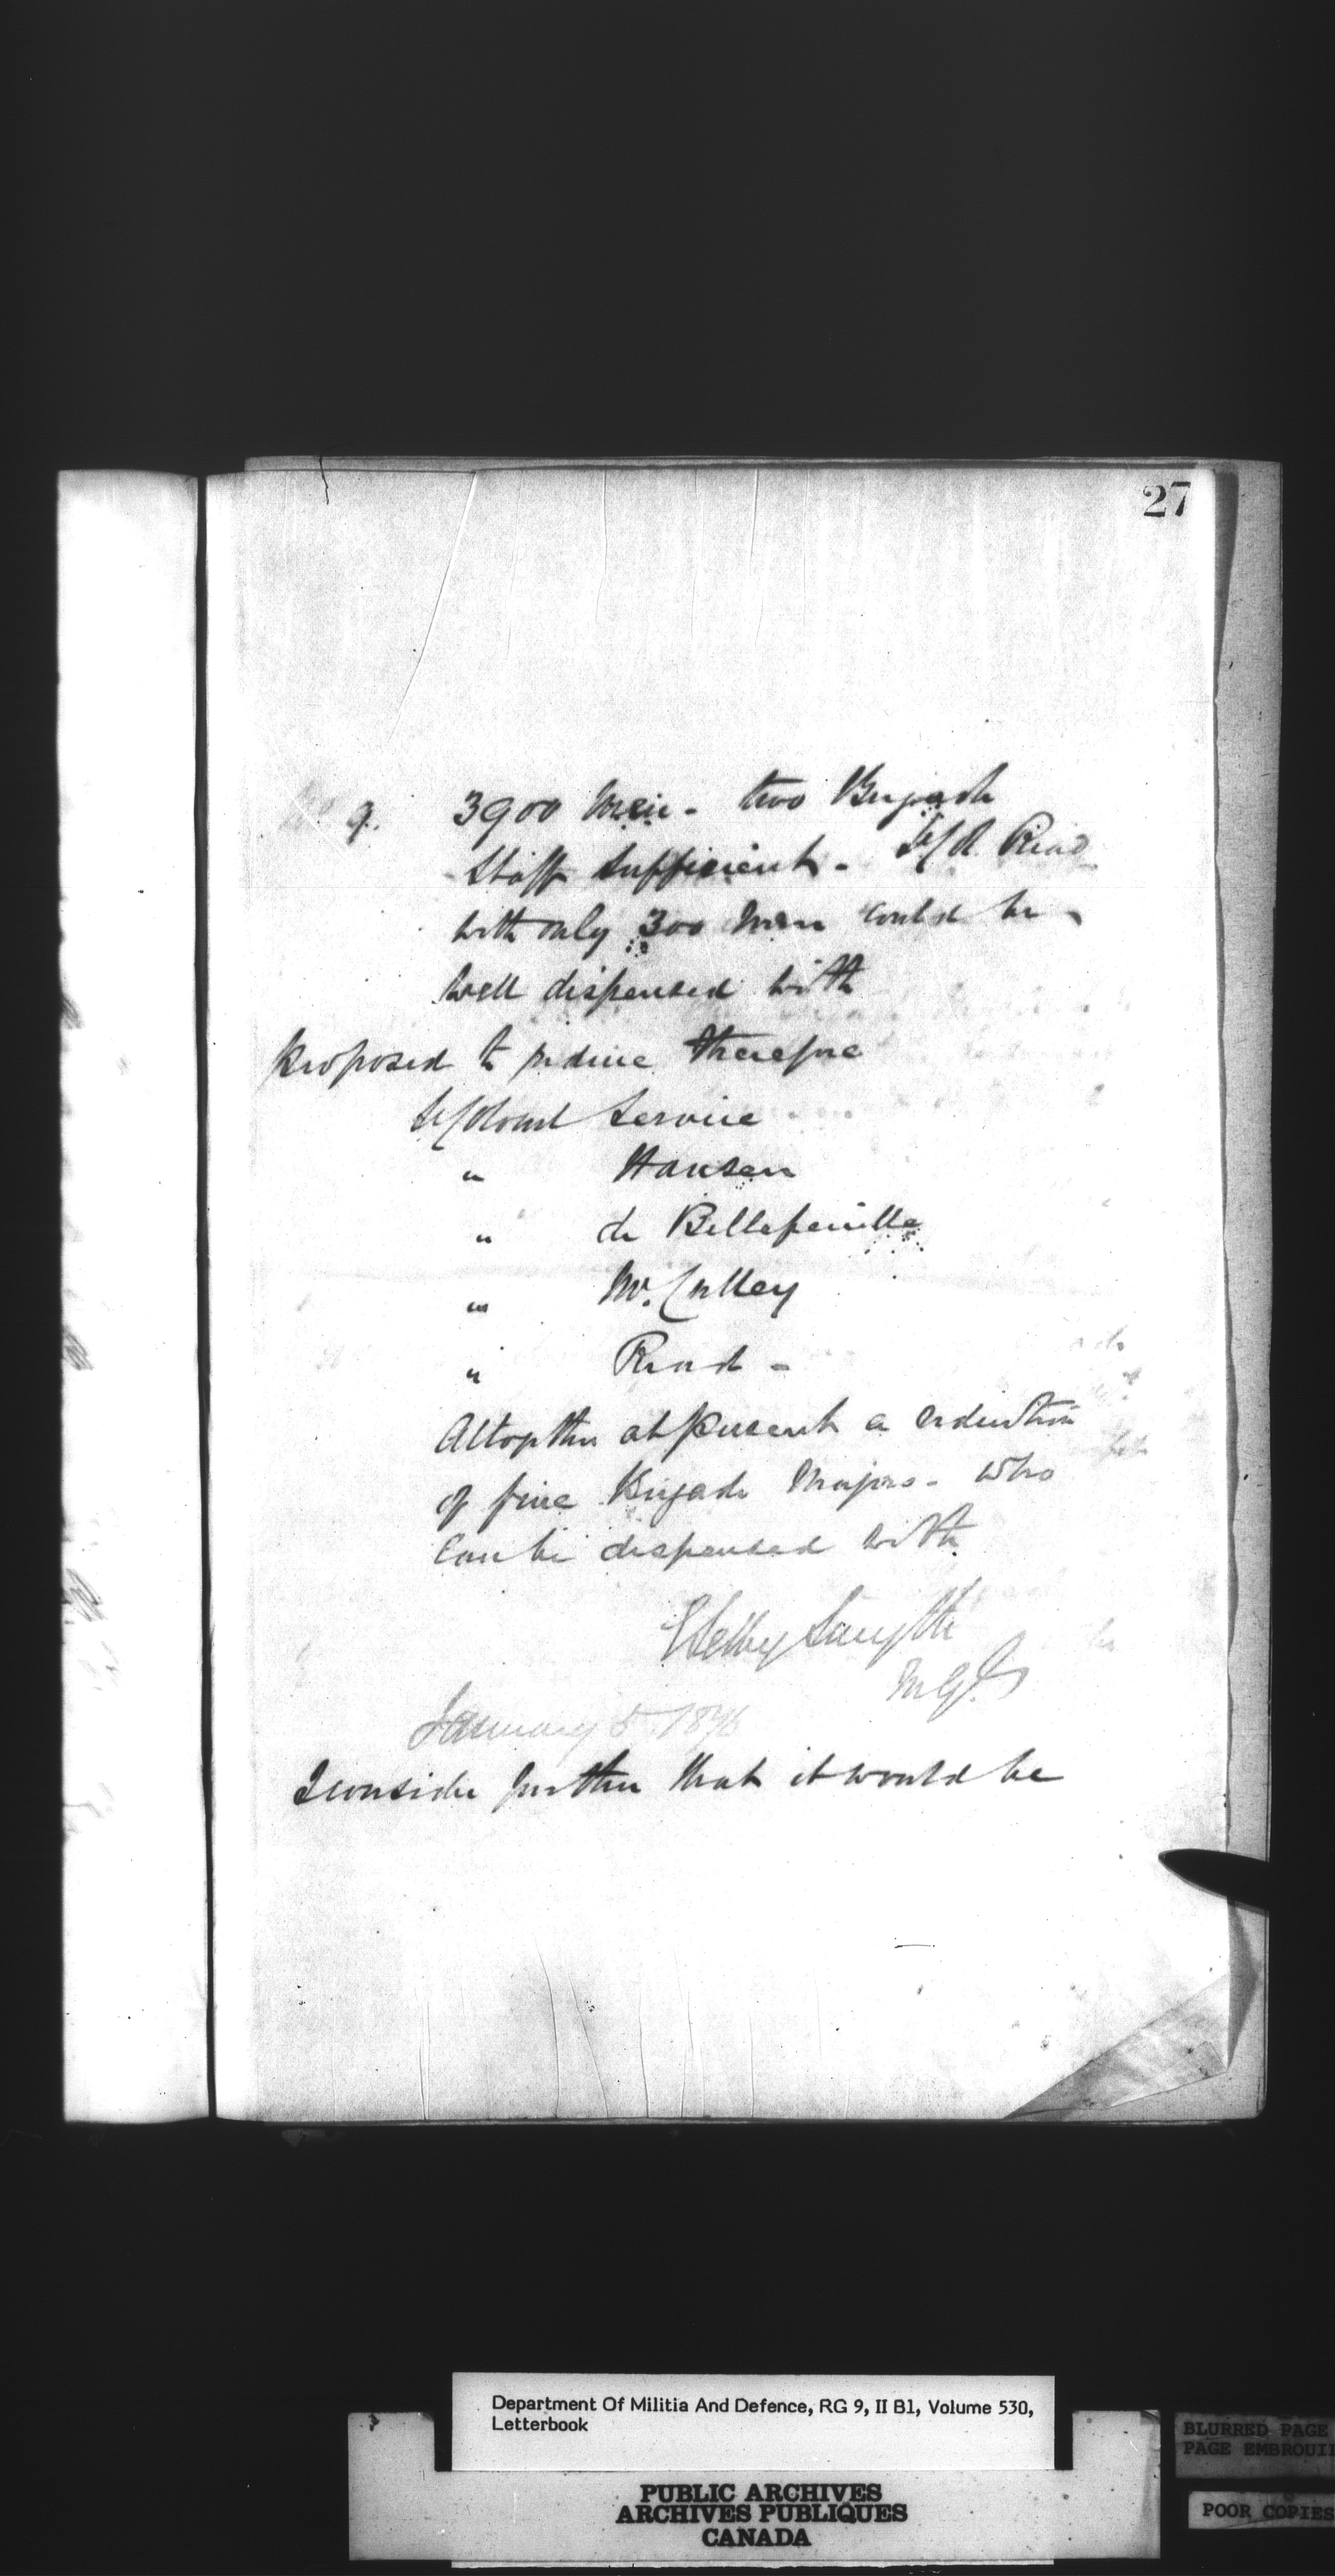 27
9. 3900 Men - two Brigade
Staff sufficient - Lt/Col Read
with only 300 Men could be
well dispensed with
Proposed to reduce therefore
Lt/Colonel Service
" Hanson
" de Bellefeuille
" McCulley
" Read -
Altogether at present a reduction
of five Brigade Majors - who
can be dispensed with
E Selby Smyth
M Gl
January 5. 1876
I consider further that it would be
Department Of Militia And Defence, RG 9, II B1, Volume 530,
Letterbook
PUBLIC ARCHIVES
ARCHIVES PUBLIQUES
CANADA
BLURRED PAGE
PAGE EMBROUIL
POOR COPIES